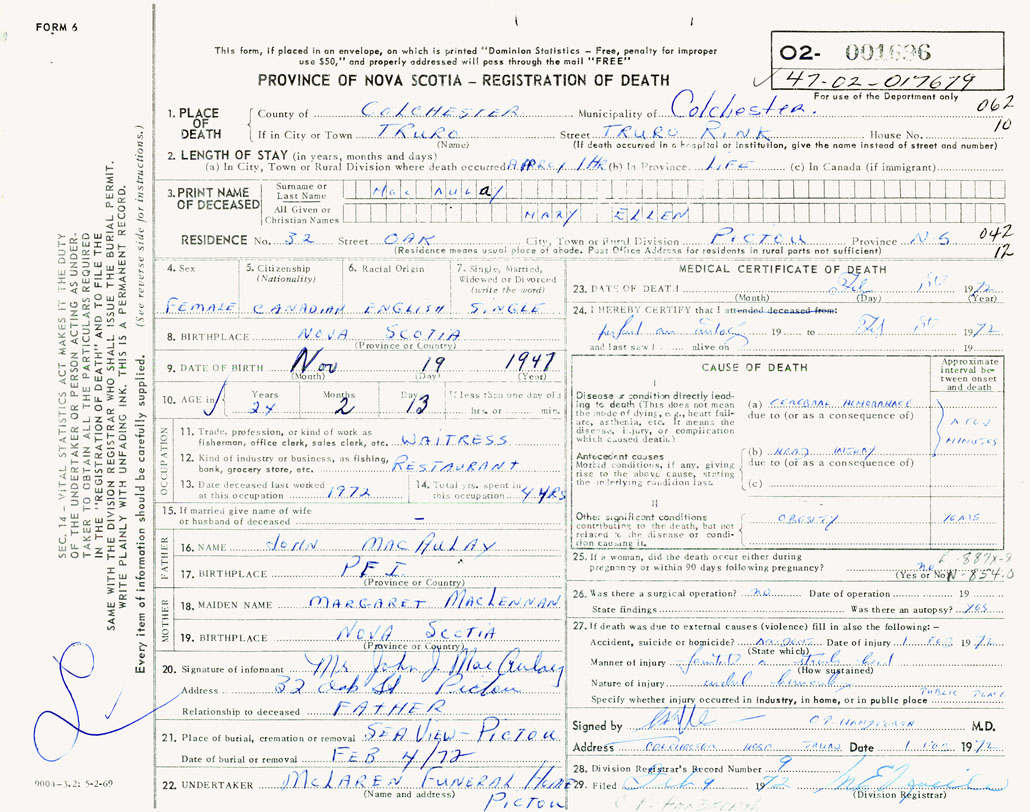 FORM 6
This form, if placed in an envelope, on which is printed "Dominion Statistics – Free, penalty for improper
use $50," and properly addressed will pass through the mail "FREE"
PROVINCE OF NOVA SCOTIA – REGISTRATION OF DEATH
02- 001696
47-02-017679
For use of the Department only
062
10
1. PLACE OF DEATH County of COLCHESTER Municipality of Colchester.
If in City or Town TRURO Street TRURO RINK House No.
(Name) (If death occurred in a hospital or institution, give the name instead of street and number)
2. LENGTH OF STAY (in years, months and days)
(a) In City, Town or Rural Division where death occurred APPROX 1 HR (b) In Province LIFE (c) In Canada (if immigrant)
3. PRINT NAME OF DECEASED Surname or Last Name MacAulay
All Given or Christian Names MARY ELLEN
RESIDENCE No. 32 Street OAK City, Town or Rural Division PICTOU Province NS
(Residence means usual place of abode. Post Office Address for residents in rural parts not sufficient)
042
12
4. Sex 5. Citizenship (Nationality) 6. Racial Origin 7. Single, Married, Widowed or Divorced (write the word)
FEMALE CANADIAN ENGLISH SINGLE
8. BIRTHPLACE NOVA SCOTIA
(Province or Country)
9. DATE OF BIRTH Nov 19 1947
(Month) (Day) (Year)
10. AGE in Years Months Days If less than one day old
24 2 13 hrs. or min.
OCCUPATION
11. Trade, profession, or kind of work as
fisherman, office clerk, sales clerk, etc. WAITRESS
12. Kind of industry or business, as fishing,
bank, grocery store, etc. RESTAURANT
13. Date deceased last worked
at this occupation 1972
14. Total yrs. spent in
this occupation 4 YRS
15. If married give name of wife
or husband of deceased –
FATHER
16. NAME JOHN MACAULAY
17. BIRTHPLACE PEI
(Province or Country)
MOTHER
18. MAIDEN NAME MARGARET MACLENNAN
19. BIRTHPLACE NOVA SCOTIA
(Province or Country)
20. Signature of informant Mr John J. MacAulay
Address 32 Oak St Pictou
Relationship to deceased FATHER
21. Place of burial, cremation or removal SEA VIEW – PICTOU
Date of burial or removal FEB 4/72
22. UNDERTAKER McLAREN FUNERAL HOME
(Name and address) PICTOU
MEDICAL CERTIFICATE OF DEATH
23. DATE OF DEATH Feb 1st 1972
(Month) (Day) (Year)
24. I HEREBY CERTIFY that I attended deceased from:
19 to Feb 1st 1972
and last saw h alive on 19
CAUSE OF DEATH
Approximate interval between onset and death
I
Disease or condition directly leading
to death (This does not mean
the mode of dying, e.g., heart failure,
asthenia, etc. It means the
disease, injury, or complication
which caused death.)
(a) CEREBRAL HEMORRHAGE
due to (or as a consequence of)
A FEW
MINUTES
Antecedent causes
Morbid conditions, if any, giving
rise to the above cause, stating
the underlying condition last.
(b) HEAD INJURY
due to (or as a consequence of)
(c)
II
Other significant conditions
contributing to the death, but not
related to the disease or condition
causing it.
OBESITY YEARS
25. If a woman, did the death occur either during
pregnancy or within 90 days following pregnancy? no
(Yes or No)
N-854.0
26. Was there a surgical operation? no Date of operation 19
State findings Was there an autopsy? YES
27. If death was due to external causes (violence) fill in also the following:–
Accident, suicide or homicide? ACCIDENT Date of injury 1 FEB 1972
(State which)
Manner of injury fainted & struck head
(How sustained)
Nature of injury
Specify whether injury occurred in industry, in home, or in public place PUBLIC PLACE
Signed by M.D.
Address COLCHESTER HOSP TRURO Date 1 FEB 1972
28. Division Registrar's Record Number 9
29. Filed Feb 9 1972
(Division Registrar)
SEC. 14 – VITAL STATISTICS ACT MAKES IT THE DUTY
OF THE UNDERTAKER OR PERSON ACTING AS UNDER-
TAKER TO OBTAIN ALL THE PARTICULARS REQUIRED
IN THE "REGISTRATION OF DEATH" AND TO FILE THE
SAME WITH THE DIVISION REGISTRAR WHO SHALL ISSUE THE BURIAL PERMIT.
WRITE PLAINLY WITH UNFADING INK. THIS IS A PERMANENT RECORD.
Every item of information should be carefully supplied. (See reverse side for instructions.)
9004-3.2: 5-2-69